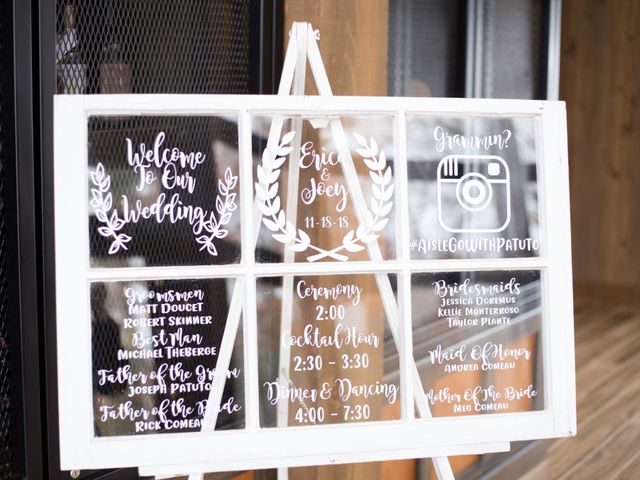 Welcome
To Our
Wedding
Erica
&
Joey
11-18-18
Grammin?
#AisleGoWithPatuto
Groomsmen
Matt Doucet
Robert Skinner
Best Man
Michael Theberge
Father of the Groom
Joseph Patuto
Father of the Bride
Rick Comeau
Ceremony
2:00
Cocktail Hour
2:30 - 3:30
Dinner & Dancing
4:00 - 7:30
Bridesmaids
Jessica Doremus
Kellie Monterroso
Taylor Plante
Maid Of Honor
Andrea Comeau
Mother Of The Bride
Meg Comeau